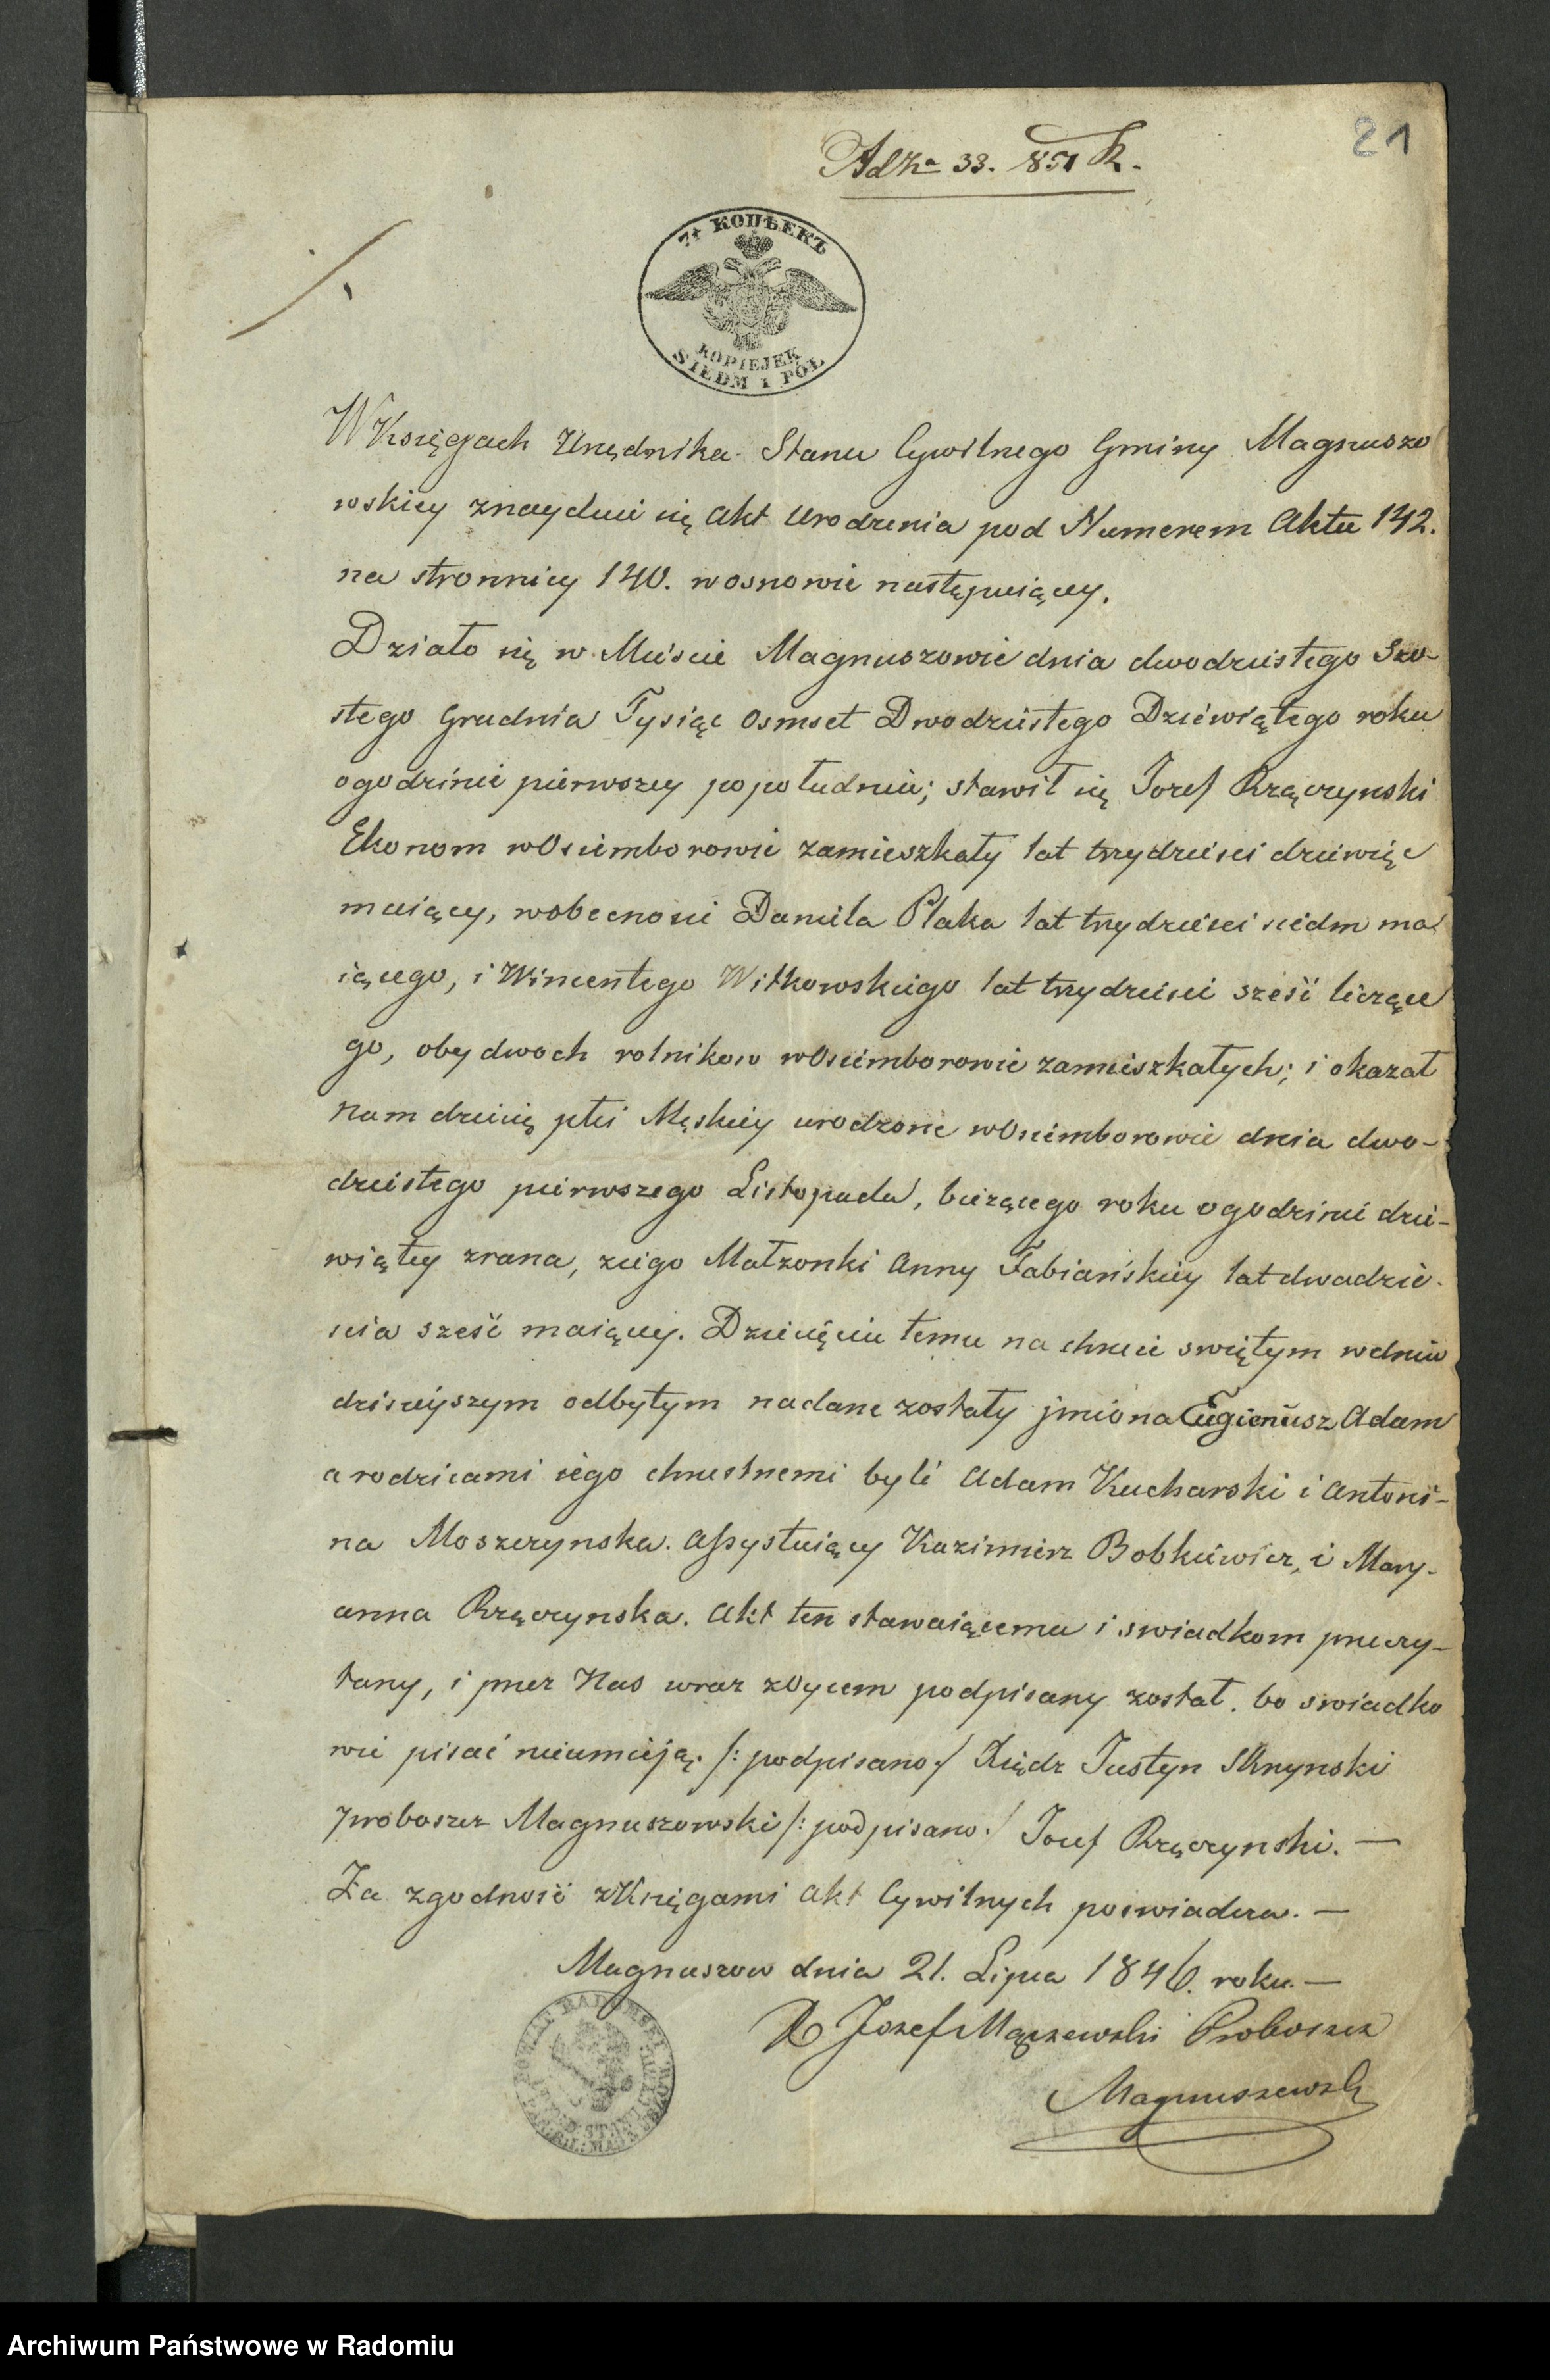 21
Ad Nr 33. 851 R.
7½ КОПѢЕКЪ
KOPIEJEK
SIEDM I PÓŁ
W Księgach Urzędnika Stanu Cywilnego Gminy Magnuszo
wskiey znayduie się Akt Urodzenia pod Numerem Aktu 142.
na stronnicy 140. w osnowie następuiącey.
Działo się w Mieście Magnuszowie dnia dwodziestego Szo-
stego Grudnia Tysiąc Osmset Dwodziestego Dziewiątego roku
o godzinie pierwszey po południu; stawił się Jozef Rzączynski
Ekonom w Osiemborowie zamieszkały lat trzydzieści dziewięc
maiący, w obecności Daniela Ptaka lat trzydzieści siedm ma
iącego, i Wincentego Witkowskiego lat trzydzieści sześć liczące
go, obydwoch rolnikow w Osiemborowie zamieszkałych; i okazał
Nam dziecię płci Męskiey urodzone w Osiemborowie dnia dwo-
dziestego pierwszego Listopada, bieżącego roku o godzinie dzie-
wiątey zrana, z iego Małzonki Anny Fabiańskiey lat dwadzie-
ścia sześć maiącey. Dziecięciu temu na chrzcie swiętym w dniu
dzisieyszym odbytym nadane zostały jmiona Eugieniusz Adam
a rodzicami iego chrzestnemi byli Adam Kucharski i Antoni-
na Moszczynska. Assystuiący Kazimierz Bobkiewicz, i Mary-
anna Rzączynska. Akt ten stawaiącemu i swiadkom przeczy-
tany, i przez Nas wraz z Oycem podpisany został. bo swiadko
wie pisać nieumieją. /: podpisano :/ Xiądz Justyn Skrzynski
proboszcz Magnuszowski /: podpisano :/ Jozef Rzączynski. —
Za zgodność z Księgami Akt Cywilnych poswiadcza. —
Magnuszow dnia 21. Lipca 1846. roku. —
X Jozef Mączewski Proboszcz
Magnuszewski
POWIAT RADOMSKI
Archiwum Państwowe w Radomiu